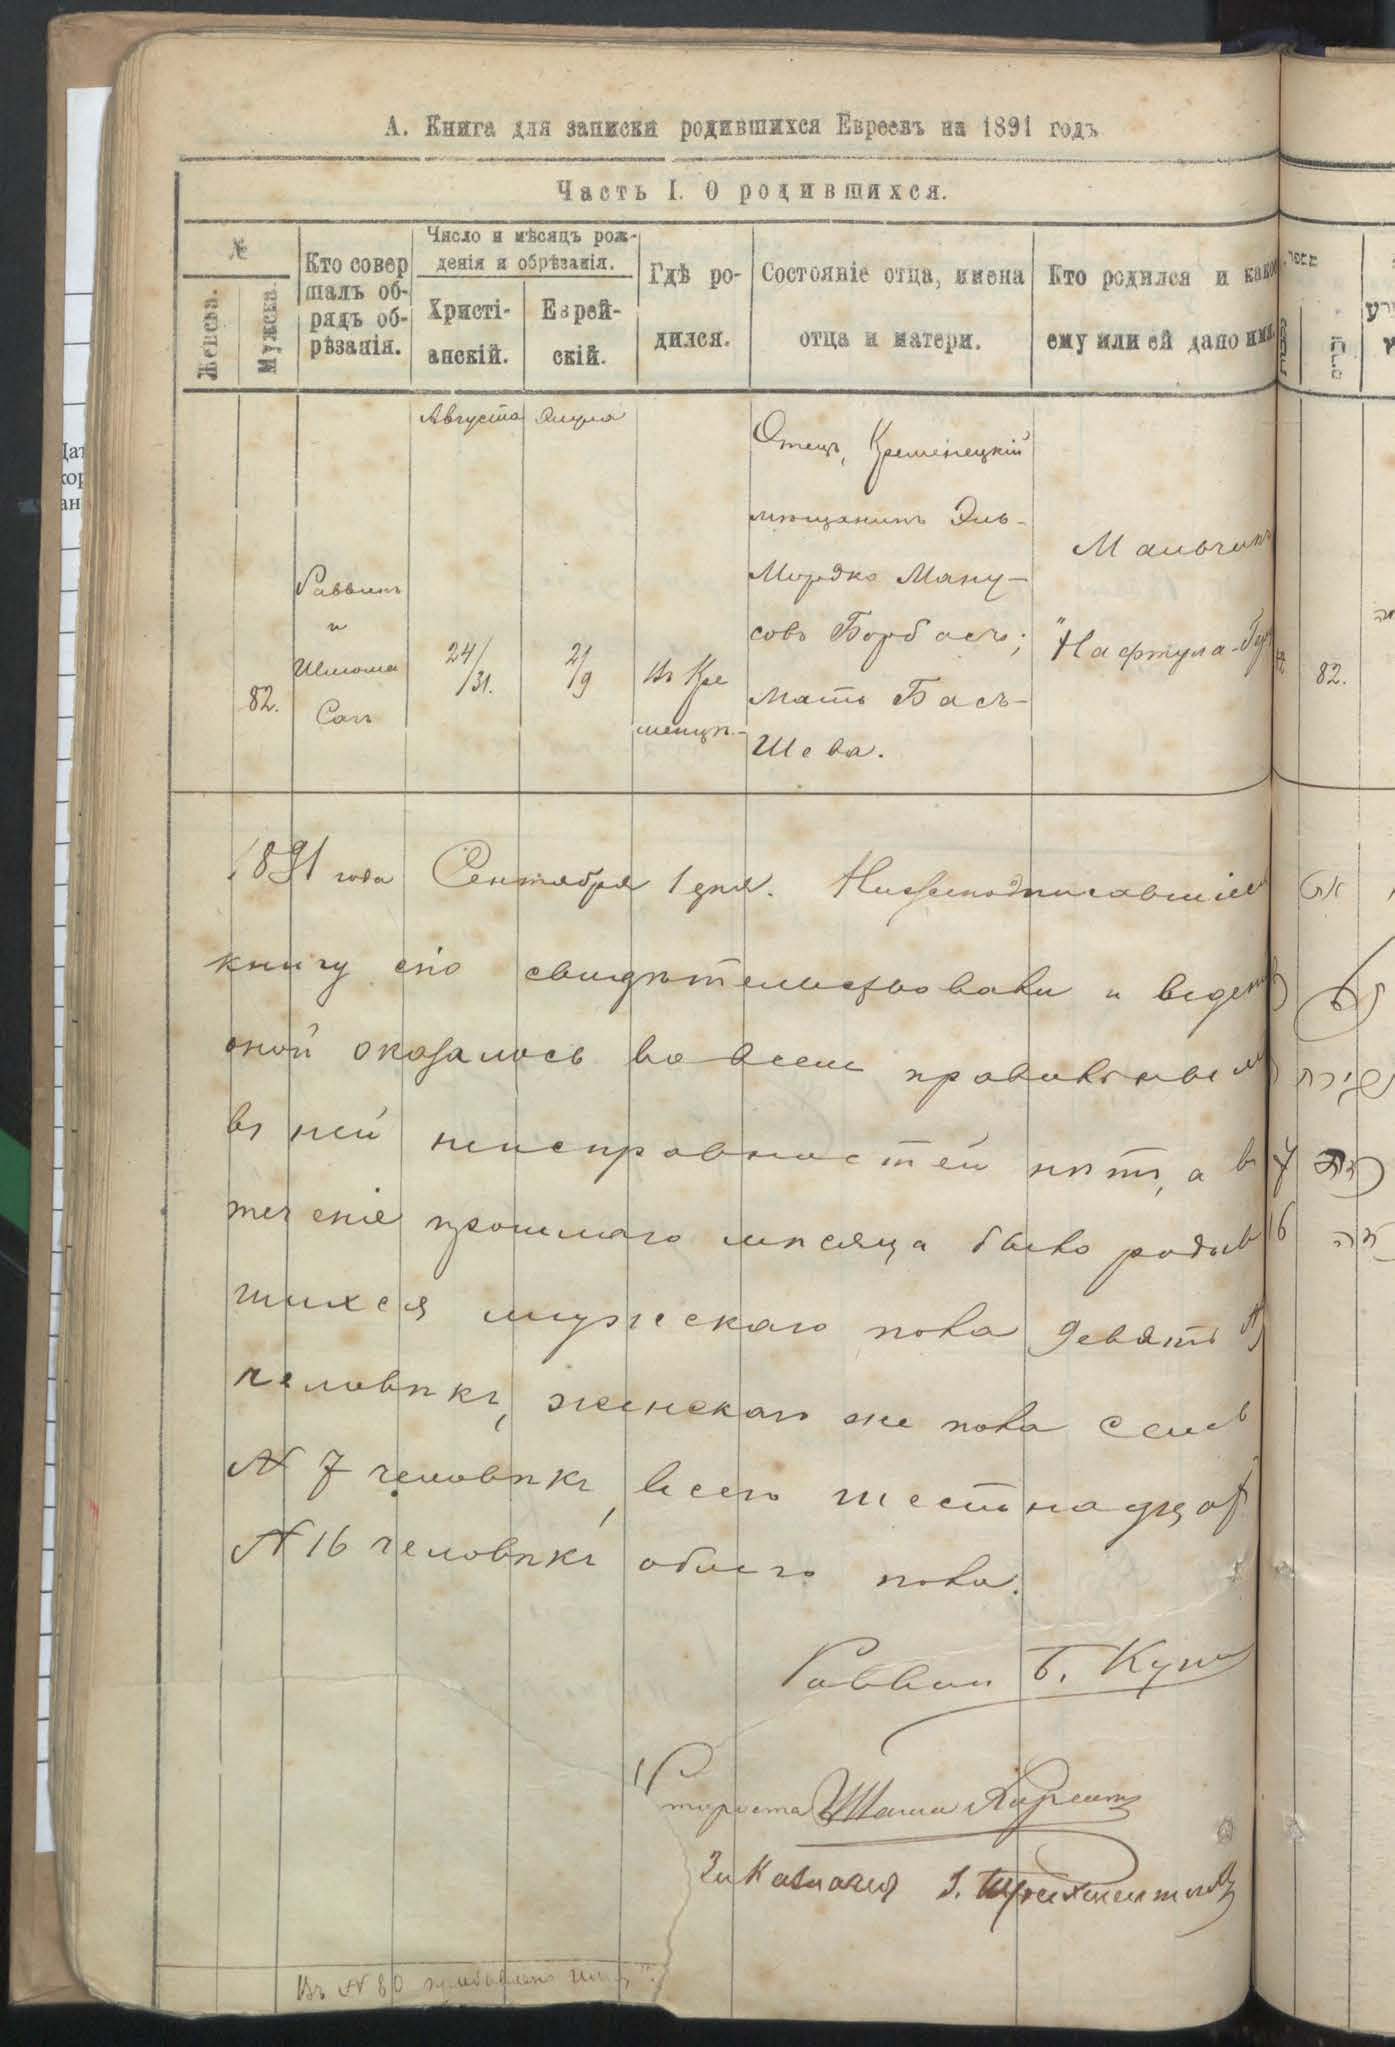 А. Книга для записки родившихся Евреевъ на 1891 годъ
Часть I. О родившихся.
№
Женска.
Мужска.
Кто совер
шалъ об-
рядъ об-
рѣзанія.
Число и мѣсяцъ рож-
денія и обрѣзанія.
Христі-
анскій.
Еврей-
скій.
Гдѣ ро-
дился.
Состояніе отца, имена
отца и матери.
Кто родился и какое
ему или ей дано имя.
82.
Раввинъ
и
Шлиома
Сагъ
Августа
24/31.
Элула
2/9
Въ Кре
менцѣ.-
Отецъ, Кременецкій
мѣщанинъ Эль-
Мордко Ману-
совъ Борбасъ;
мать Бася-
Шева.
Мальчикъ
"Нафтула-
82.
1891 года Сентября 1 дня. Нижеподписавшіеся
книгу сію свидѣтельствовали и веденіе
оной оказалось во всем правильным
въ ней неисправностей нѣтъ, а въ
теченіе прошлаго мѣсяца было родив
шихся мужескаго пола девять
человѣкъ, женскаго же пола семь
№ 7 человѣкъ, всего шестнадцать
№ 16 человѣкъ обоего пола.
Раввин Б. Кунин
Староста
За Казначея
Въ № 80
7
16